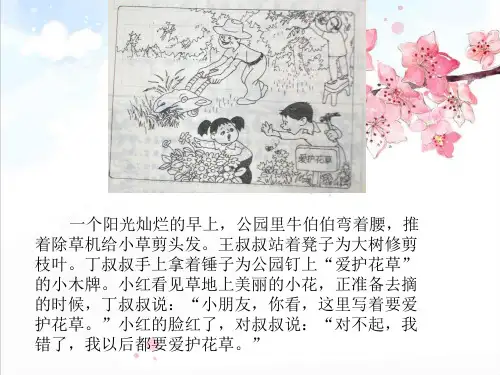 爱护花草
一个阳光灿烂的早上，公园里牛伯伯弯着腰，推
着除草机给小草剪头发。王叔叔站着凳子为大树修剪
枝叶。丁叔叔手上拿着锤子为公园钉上“爱护花草”
的小木牌。小红看见草地上美丽的小花，正准备去摘
的时候，丁叔叔说：“小朋友，你看，这里写着要爱
护花草。”小红的脸红了，对叔叔说：“对不起，我
错了，我以后都要爱护花草。”